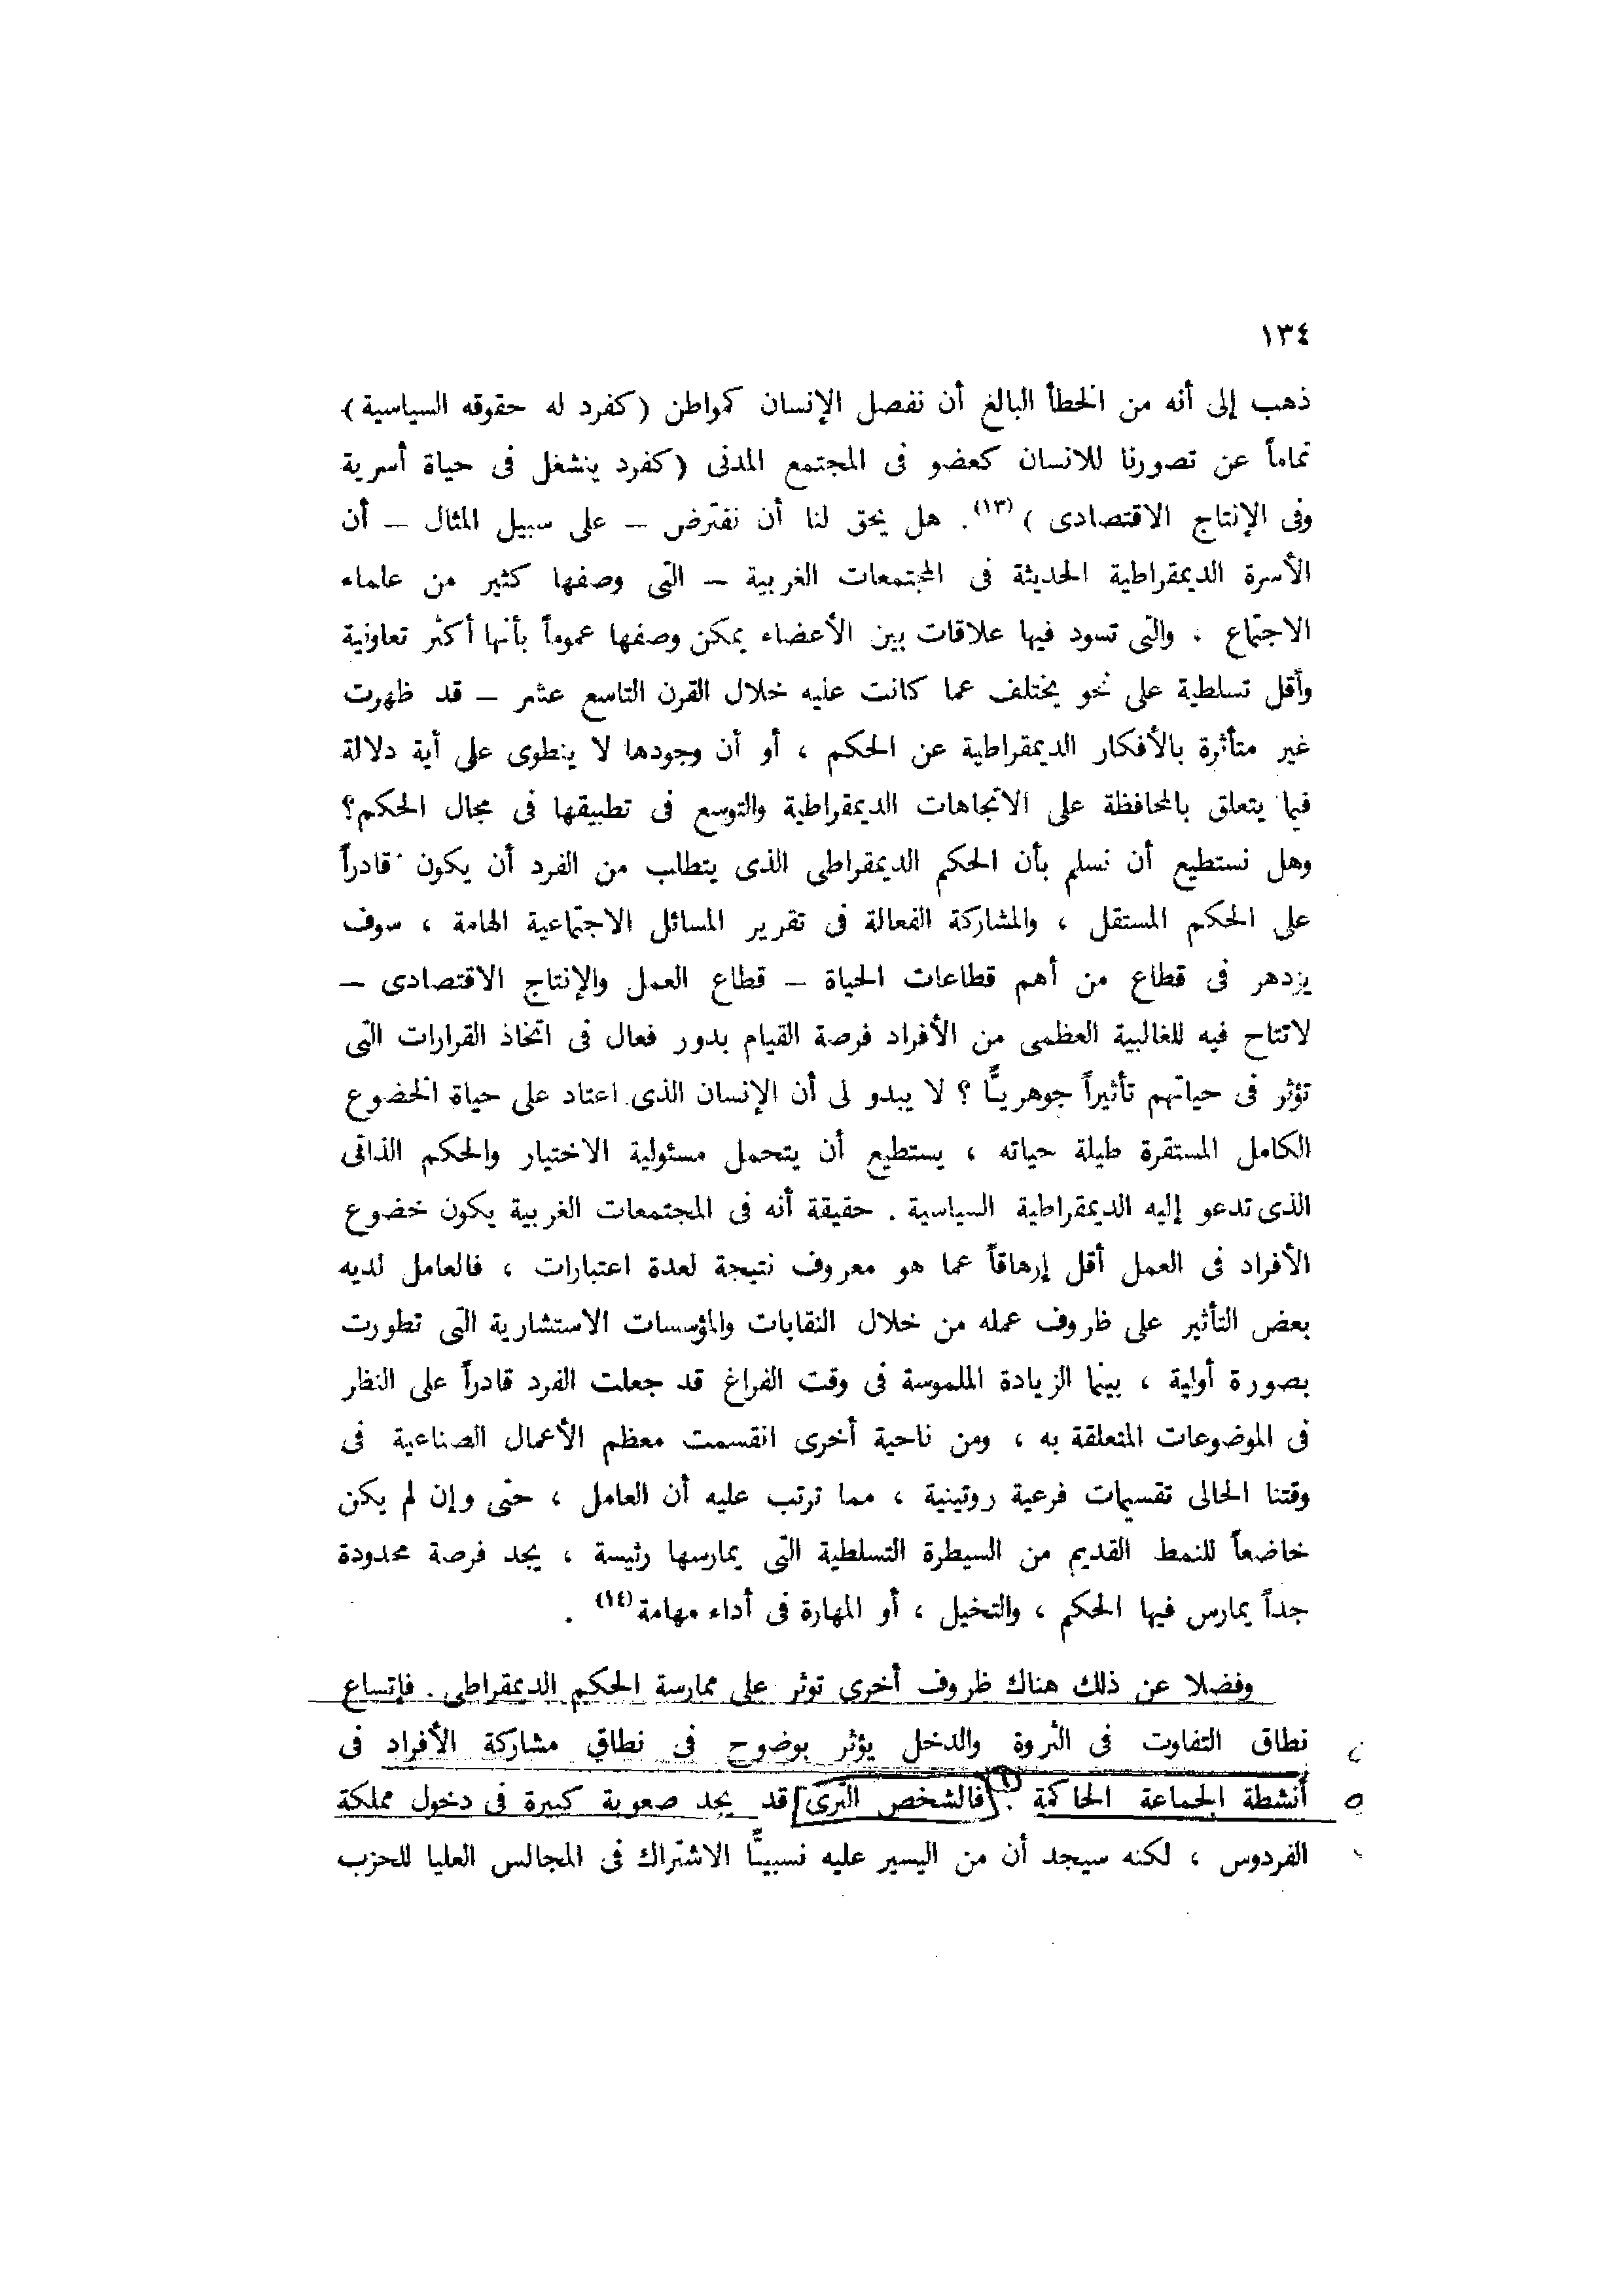 ١٣٤
ذهب إلى أنه من الخطأ البالغ أن نفصل الإنسان كمواطن (كفرد له حقوقه السياسية)
تماماً عن تصورنا للانسان كعضو فى المجتمع المدنى (كفرد ينشغل فى حياة أسرية
وفى الإنتاج الاقتصادى ) (١٣). هل يحق لنا أن نفترض – على سبيل المثال – أن
الأسرة الديمقراطية الحديثة فى المجتمعات الغربية – التى وصفها كثير من علماء
الاجتماع ، والتى تسود فيها علاقات بين الأعضاء يمكن وصفها عموماً بأنها أكثر تعاونية
وأقل تسلطية على نحو يختلف عما كانت عليه خلال القرن التاسع عشر – قد ظهرت
غير متأثرة بالأفكار الديمقراطية عن الحكم ، أو أن وجودها لا ينطوى على أية دلالة
فيما يتعلق بالمحافظة على الاتجاهات الديمقراطية والتوسع فى تطبيقها فى مجال الحكم؟
وهل نستطيع أن نسلم بأن الحكم الديمقراطى الذى يتطلب من الفرد أن يكون قادراً
على الحكم المستقل ، والمشاركة الفعالة فى تقرير المسائل الاجتماعية الهامة ، سوف
يزدهر فى قطاع من أهم قطاعات الحياة – قطاع العمل والإنتاج الاقتصادى –
لاتتاح فيه للغالبية العظمى من الأفراد فرصة القيام بدور فعال فى اتخاذ القرارات التى
تؤثر فى حياتهم تأثيراً جوهريًّا ؟ لا يبدو لى أن الإنسان الذى اعتاد على حياة الخضوع
الكامل المستقرة طيلة حياته ، يستطيع أن يتحمل مسئولية الاختيار والحكم الذاتى
الذى تدعو إليه الديمقراطية السياسية . حقيقة أنه فى المجتمعات الغربية يكون خضوع
الأفراد فى العمل أقل إرهاقاً عما هو معروف نتيجة لعدة اعتبارات ، فالعامل لديه
بعض التأثير على ظروف عمله من خلال النقابات والمؤسسات الاستشارية التى تطورت
بصورة أولية ، بينما الزيادة الملموسة فى وقت الفراغ قد جعلت الفرد قادراً على النظر
فى الموضوعات المتعلقة به ، ومن ناحية أخرى انقسمت معظم الأعمال الصناعية فى
وقتنا الحالى تقسيمات فرعية روتينية ، مما ترتب عليه أن العامل ، حتى وإن لم يكن
خاضعاً للنمط القديم من السيطرة التسلطية التى يمارسها رئيسة ، يجد فرصة محدودة
جداً يمارس فيها الحكم ، والتخيل ، أو المهارة فى أداء مهامة (١٤) .
وفضلا عن ذلك هناك ظروف أخرى توثر على ممارسة الحكم الديمقراطى . فإتساع
نطاق التفاوت فى الثروة والدخل يؤثر بوضوح فى نطاق مشاركة الأفراد فى
أنشطة الجماعة الحاكمة . فالشخص الثرى قد يجد صعوبة كبيرة فى دخول مملكة
الفردوس ، لكنه سيجد أن من اليسير عليه نسبيًّا الاشتراك فى المجالس العليا للحزب